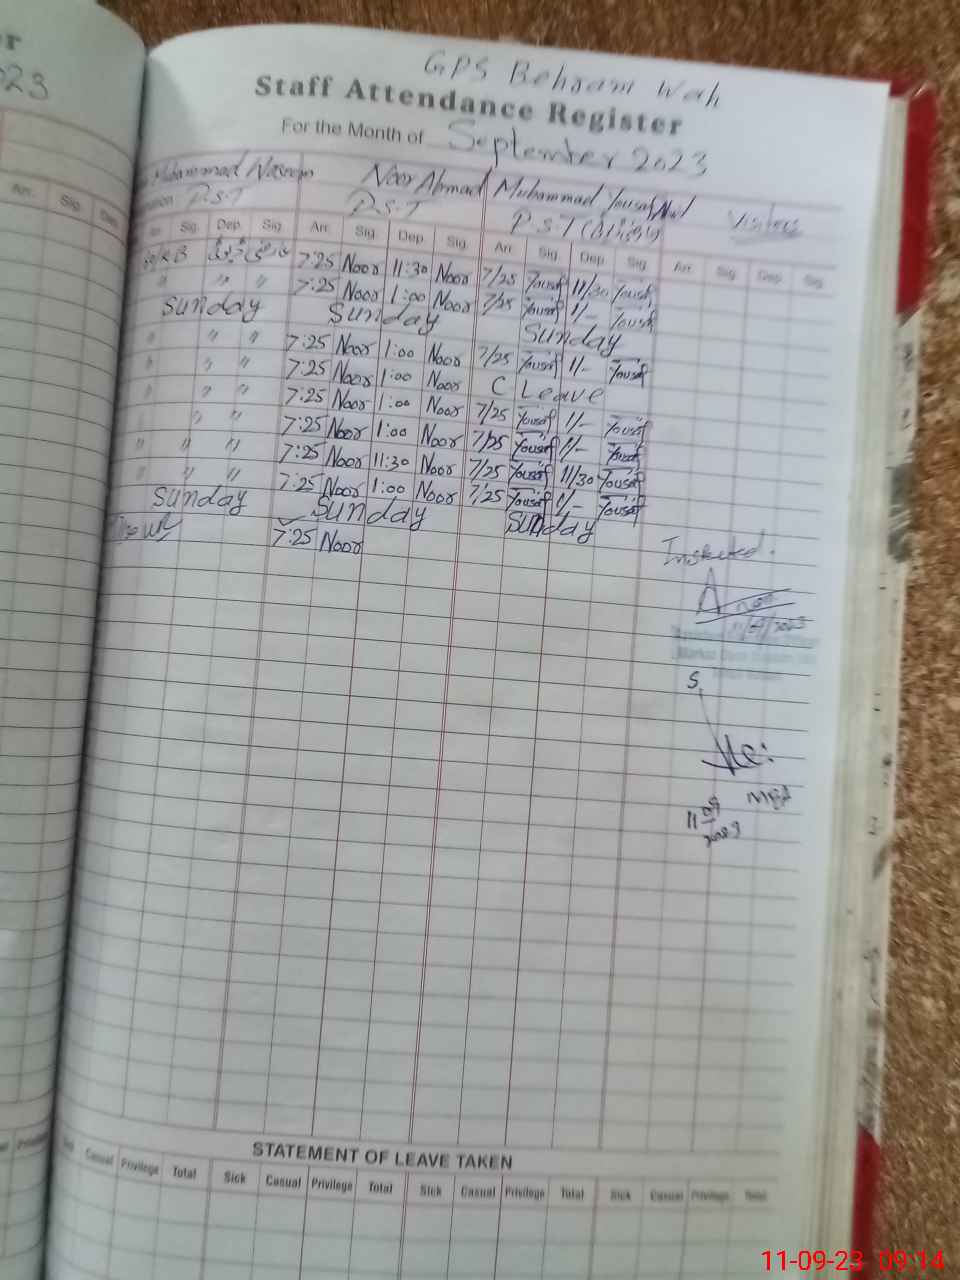 er
2023
Arr.
Sig.
Dep.
GPS Behram Wah
Staff Attendance Register
For the Month of September 2023
Muhammad Naseem Noor Ahmad Muhammad Yousaf Visitors
P.S.T P.S.T P.S.T
Sig. Dep. Sig. Arr. Sig. Dep. Sig. Arr. Sig. Dep. Sig. Arr. Sig. Dep. Sig.
7:25 Noor 11:30 Noor 7/25 Yousaf 11/30 Yousaf
" " " 7:25 Noor 1:00 Noor 7/25 Yousaf 1/- Yousaf
Sunday Sunday Sunday
" " " 7:25 Noor 1:00 Noor 7/25 Yousaf 1/- Yousaf
" " " 7:25 Noor 1:00 Noor C Leave
" " " 7:25 Noor 1:00 Noor 7/25 Yousaf 1/- Yousaf
" " 7:25 Noor 1:00 Noor 7/25 Yousaf 1/- Yousaf
" " " 7:25 Noor 11:30 Noor 7/25 Yousaf 11/30 Yousaf
" " " 7:25 Noor 1:00 Noor 7/25 Yousaf 1/- Yousaf
Sunday Sunday Sunday
7:25 Noor
11/09/2023
11/09/2023
STATEMENT OF LEAVE TAKEN
Casual Privilege Total Sick Casual Privilege Total Sick Casual Privilege Total Sick Casual Privilege Total
11-09-23 09:14